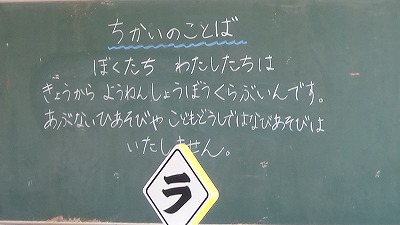 ちかいのことば
ぼくたち わたしたちは
きょうから ようねんしょうぼうくらぶいんです。
あぶないひあそびや こどもどうしではなびあそびは
いたしません。
ラ